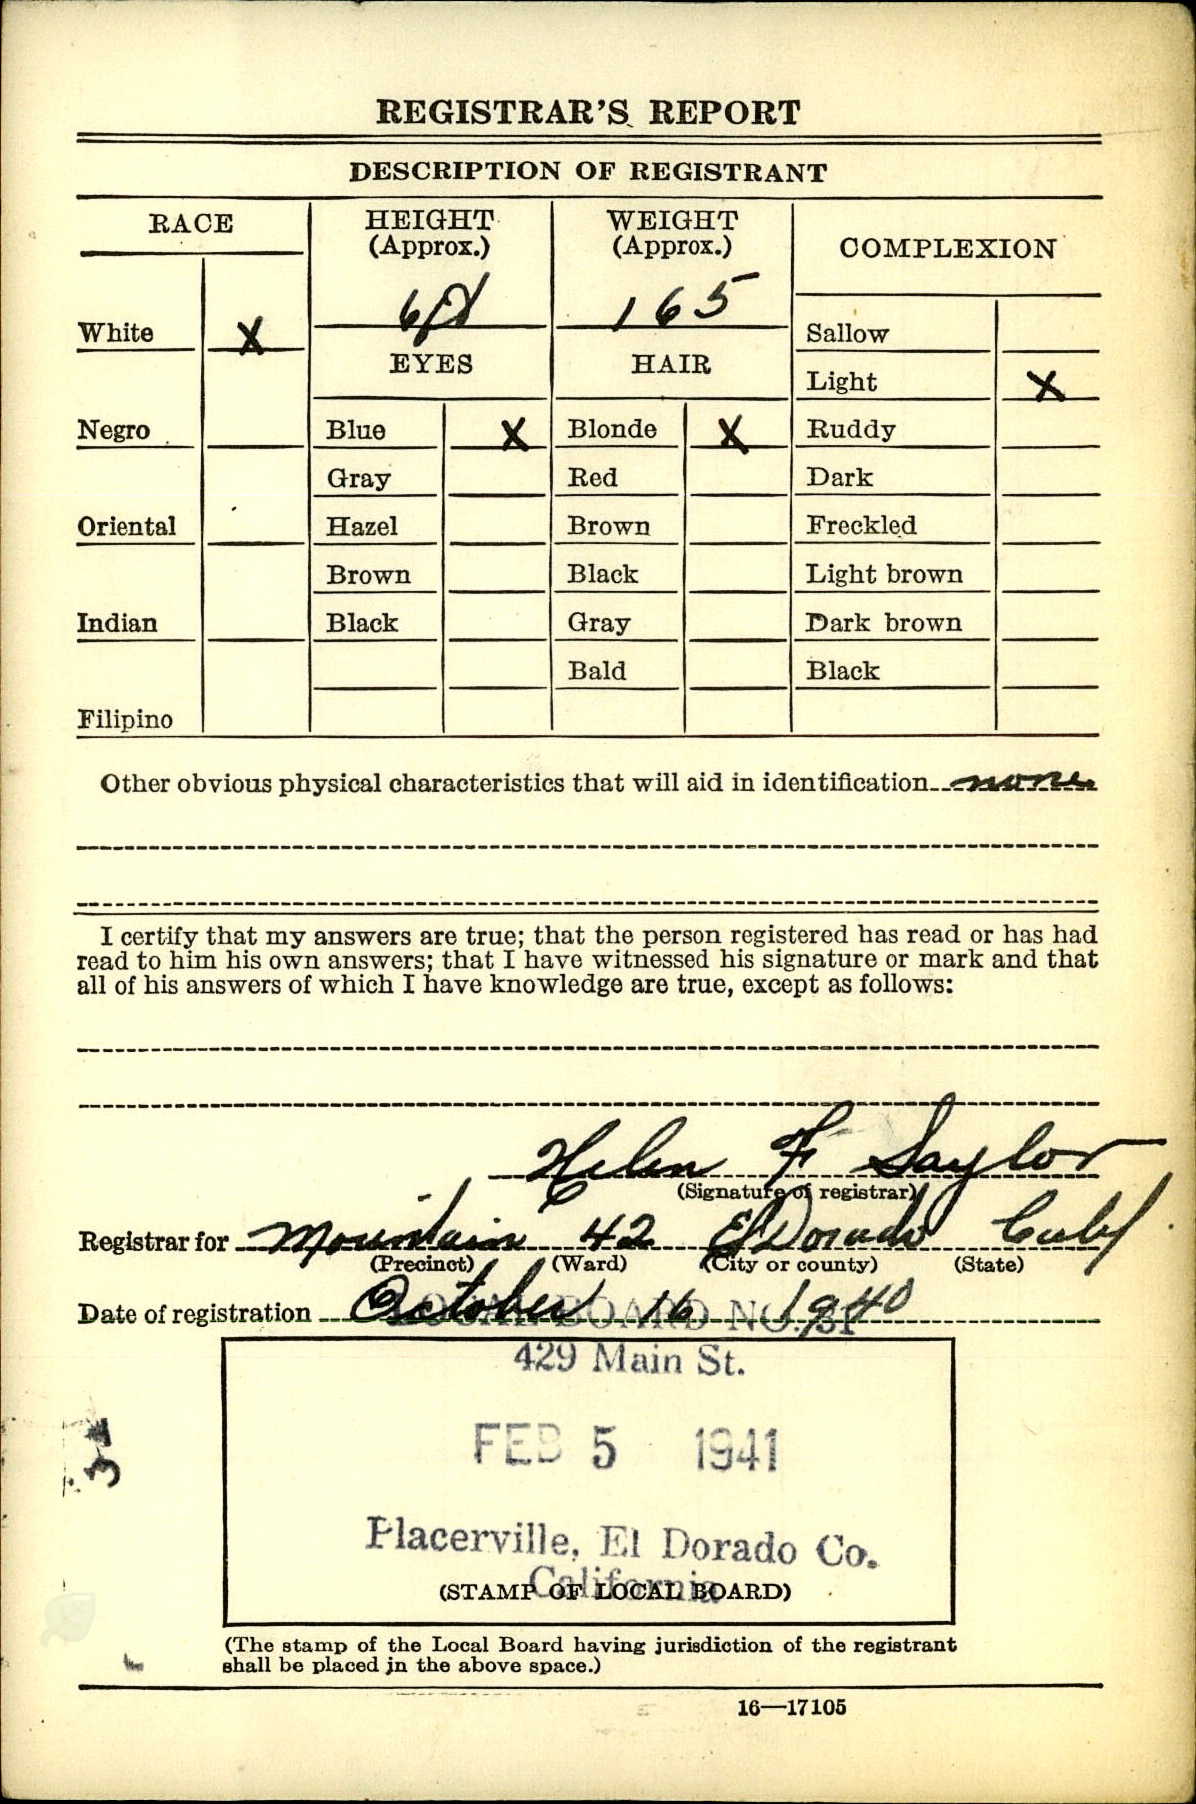 REGISTRAR'S REPORT
DESCRIPTION OF REGISTRANT
RACE
HEIGHT
(Approx.)
WEIGHT
(Approx.)
COMPLEXION
165
White X
Sallow
EYES
HAIR
Light X
Negro
Blue X
Blonde X
Ruddy
Gray
Red
Dark
Oriental
Hazel
Brown
Freckled
Brown
Black
Light brown
Indian
Black
Gray
Dark brown
Bald
Black
Filipino
Other obvious physical characteristics that will aid in identification none
I certify that my answers are true; that the person registered has read or has had
read to him his own answers; that I have witnessed his signature or mark and that
all of his answers of which I have knowledge are true, except as follows:
Helen F Saylor
(Signature of registrar)
Registrar for Mountain 42 El Dorado Calif
(Precinct) (Ward) (City or county) (State)
Date of registration October 16 1940
LOCAL BOARD NO.
429 Main St.
FEB 5 1941
Placerville, El Dorado Co.
California
(STAMP OF LOCAL BOARD)
(The stamp of the Local Board having jurisdiction of the registrant
shall be placed in the above space.)
16—17105